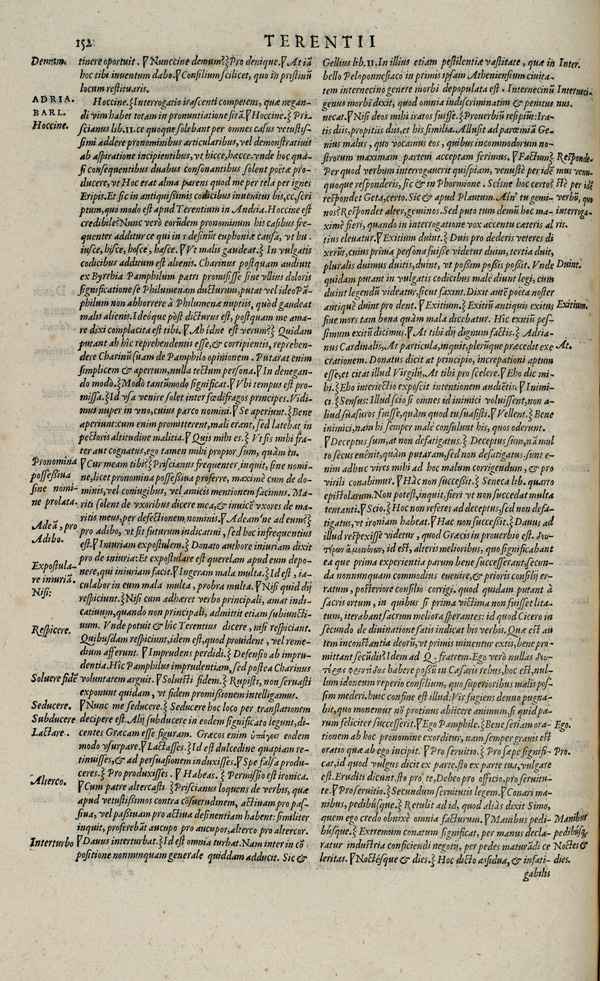 152
TERENTII
Demum.
tinere oportuit. ∇Nunccine demum?⁅Pro denique. ∇At iã
hoc tibi inventum dabo.∇Consilium scilicet, quo in pristinũ
locum restituaris.
ADRIA.
BARL.
Hoccine.
Hoccine.⁅Interrogatio irascenti competens, quæ negan-
di vim habet totam in pronuntiatione sitã.∇Hoccine.⁅Pri-
scianus lib.12.ce quoque solebant per omnes casus vetustis-
simi addere pronominibus articularibus, vel demonstrativis
ab aspiratione incipientibus, vt hicce,hæcce.vnde hoc qua-
si consequentibus duabus consonantibus solent poetæ pro-
ducere, vt Hoc erat alma parens quod me per tela per ignes
Eripis.Et sic in antiquissimis codicibus invenitur bis,cc,scri
ptum,quo modo est apud Terentium in Andria.Hoccine est
credibile?Nunc verò eorũdem pronominum his casibus fre-
quenter additur ce qui in s desinũt euphoniæ causâ, vt hu-
iusce, hisce, hosce, hasce. ∇Vt malis gaudeat.⁅ In vulgatis
codicibus additum est alienis. Charinus postquam audiuit
ex Byrrhia Pamphilum patri promisisse sine vllius doloris
significatione se Philumenam ducturum,putat vel ideo Pã-
philum non abhorrere à Philumenæ nuptiis, quòd gaudeat
malis alienis.Ideóque pòst dicturus est,postquam me ama-
re dixi complacita est tibi. ∇Ab idne est verum?⁅ Quidam
putant ab hîc reprehendentis esse,& corripientis, reprehen-
dere Charinũ suam de Pamphilo opinionem. Putarat enim
simplicem & apertum,nulla tectum persona.∇In denegan-
do modo.⁅Modo tantũmodo significat.∇Vbi tempus est pro-
missa.⁅Id vsu venire solet inter fœdifragos principes.Vidi-
mus nuper in vno,cuius parco nomini.∇Se aperiunt.⁅Bene
aperiunt:cum enim promitterent,mali erant,sed latebat in
pectoris altitudine malitia.∇Quis mihi es.⁅Vt sis mihi fra-
ter aut cognatus,ego tamen mihi propior sum, quàm tu.
Pronomina
possessiua
sine nomi-
ne prolata.
∇Cur meam tibi?⁅Priscianus frequenter,inquit,sine nomi-
ne,licet pronomina possessiua proferre, maximè cum de do-
minis,vel coniugibus, vel amicis mentionem facimus. Ma-
riti solent de vxoribus dicere mea,& inuicẽ vxores de ma-
ritis meus,per defectionem nominis.∇Adeam'ne ad eum?⁅
Adeã, pro
Adibo.
pro adibo, vt sit futurum indicatiui, sed hoc infrequentius
est.∇Iniuriam expostulem.⁅Donato authore iniuriam dixit
Expostula-
re iniuriã.
pro de iniuria:Et expostulare est querelam apud eum depo-
nere,qui iniuriam facit.∇Ingeram mala multa.⁅Id est, ia-
Nisi:
culabor in eum mala multa , probra multa.∇Nisi quid dij
respiciunt.⁅Nisi cum adhæret verbo principali, amat indi-
catiuum,quando non principali, admittit etiam subiuncti-
Respicere.
uum. Vnde potuit & hîc Terentius dicere , nisi respiciant.
Quibusdam respiciunt,idem est,quod prouident, vel reme-
dium afferunt. ∇Imprudens perdidi.⁅Defensio ab impru-
dentia.Hîc Pamphilus imprudentiam,sed postea Charinus
Soluere fidē
voluntatem arguit. ∇Soluisti fidem.⁅ Rupisti, non seruasti
exponunt quidam, vt fidem promissionem intelligamus.
Seducere.
Subducere
Lactare.
∇Nunc me seducere.⁅ Seducere hoc loco per translationem
decipere est.Alij subducere in eodem significato legunt,di-
centes Græcam esse figuram. Græcos enim ὑπάγειν eodem
modo vsurpare.∇Lactasses.⁅Id est dulcedine quapiam re-
tinuisses,& ad persuasionem induxisses.∇Spe falsa produ-
ceres.⁅Pro produxisses. ∇ Habeas.⁅ Permissio est ironica.
Alterco.
∇Cum patre altercasti.⁅Priscianus loquens de verbis, quæ
apud vetustissimos contra cõsuetudinem, actiuam pro pas-
siua,vel passiuam pro actiua desinentiam habent:similiter
inquit,proferebãt aucupo pro aucupor,alterco pro altercor.
Interturbo
∇Dauus interturbat.⁅Id est omnia turbat.Nam inter in cõ
positione nonnunquam generale quiddam adducit. Sic &
Gellius lib.11.In illius etiam pestilentiæ vastitate, quæ in
Inter.
bello Peloponnesiaco in primis ipsam Atheniensium ciuita-
tem internecino genere morbi depopulata est . Internecinũ
Interneci-
nus.
genus morbi dixit, quod omnia indiscriminatim & penitus
necat.∇Nisi deos mihi iratos fuisse.⁅Prouerbiũ resipiũt:Ira-
tis diis,propitiis diis,et his similia.Allusit ad parœmiã Ge-
nius malus , quo vocamus eos , quibus incommodorum no-
strorum maximam partem acceptam ferimus. ∇Factum?⁅
Responde-
mus venu-
stè per idē
verbũ, quo
interroga-
ris.
Per quod verbum interroguerit quispiam, venustè per idẽ
quoque responderis,sic & in Phormione . Scisne hoc certò?
respõdet Geta,certò.Sic & apud Plautum.Ain' tu gemi-
nos?Respondet alter,geminos.Sed puto tum demũ hoc ma-
ximè fieri, quando in interrogatione vox accentu cæteris al
tius eleuatur.∇Exitium duint.⁅Duis pro dederis veteres di
xerũt,cuius prima persona fuisse videtur duim, tertia duit,
pluralis duimus duitis,duint, vt possim possis possit. Vnde
Duint.
quidam putant in vulgatis codicibus malè diunt legi, cum
duint legendũ videatur,sicut faxint.Dixit autẽ poeta noster
antiquè duint pro dent.∇Exitium.⁅Exitiũ antiquis exitus
Exitium.
siue mors tam bona quàm mala dicebatur. Hîc exitiũ pes-
simum exitũ dicimus.∇At tibi dij dignum factis.⁅ Adria-
nus Cardinalis,At particula,inquit,plerũque præcedit exe
At.
crationem. Donatus dicit at principio, increpationi aptum
esse,et citat illud Virgilij, At tibi pro scelere.∇Eho dic mi-
hi.⁅Eho interiectio exposcit intentionem audiẽtis.∇Inimi-
ci.⁅Sensus:Illud scio si onnes id inimici voluissent,non a-
liud suasuros fuisse,quàm quod tu suasisti.∇Vellent.⁅Bene
inimici,nam bi semper malè consulunt his, quos oderunt.
∇Deceptus sum,at non defatigatus.⁅ Deceptus sum,nã mul
to secus euénit,quàm putaram,sed non defatigatus.sunt e-
nim adhuc vires mihi ad hoc malum corrigendum , & pro
virili conabimur. ∇Hàc non successit.⁅ Seneca lib. quarto
epistolarum.Non potest,inquit.fieri vt non succedat multa
tentantis.∇Scio.⁅Hoc non refertes ad deceptus,sed non defa-
tigatus,vt ironiam habeat.∇Hac non successit.⁅Dauus ad
illud respexisse videtur , quod Græcis in prouerbio est. Δευ-
τέρων ἀμεινόνων,id est,alteris melioribus, quo significabant
ea que prima experientia parum bene successerant,secun-
da nonnunquam commodius euenire,& prioris consilij er-
ratum , posteriore consilio corrigi. quod quidam putant à
sacris ortum , in quibus si prima victima non fuisset lita-
tum,iterabant sacrum meliora sperantes: id quod Cicero in
secundo de diuinatione satis indicat his verbis.Quæ est au
tem inconstantia deorũ,vt primis minentur extis,bene pro-
mittant secũdis?Idem ad Q. fratrem. Ego verò nullas
habere possũ in Cæsaris rebus,hoc est,nul-
lum idoneum reperio consilium, quo superioribus malis pos-
sim mederi.huic confine est illud.Vir fugiens denuo pugna-
bit,quo monemur nõ protinus abiicere animum,si quid pa-
rum feliciter successerit.∇Ego Pamphile.⁅Bene seriam ora-
Ego.
tionem ab hoc pronomine exorditur,nam semper grauis est
oratio quæ ab ego incipit. ∇Pro seruitio.⁅ Pro sæpe signifi-
Pro.
cat,id quod vulgus dicit ex parte.sto ex parte tua,vulgare
est.Eruditi dicunt.sto pro te,Debeo pro officio,pro seruitu-
te. ∇Pro seruitio.⁅Secundum seruitutis legem.∇Conari ma-
nibus,pedibúsque.⁅ Retulit ad id, quod aliàs dixit Simo,
quem ego credo obnixè omnia facturum. ∇Manibus pedi-
Manibus
pedibúsq;
búsque.⁅ Extremum conatum significat,per manus decla-
ratur industria conficiendi negotij, per pedes maturãdi ce
Noctes &
dies.
leritas. ∇Noctésque & dies.⁅ Hoc dicto assidua,& infati-
gabilis